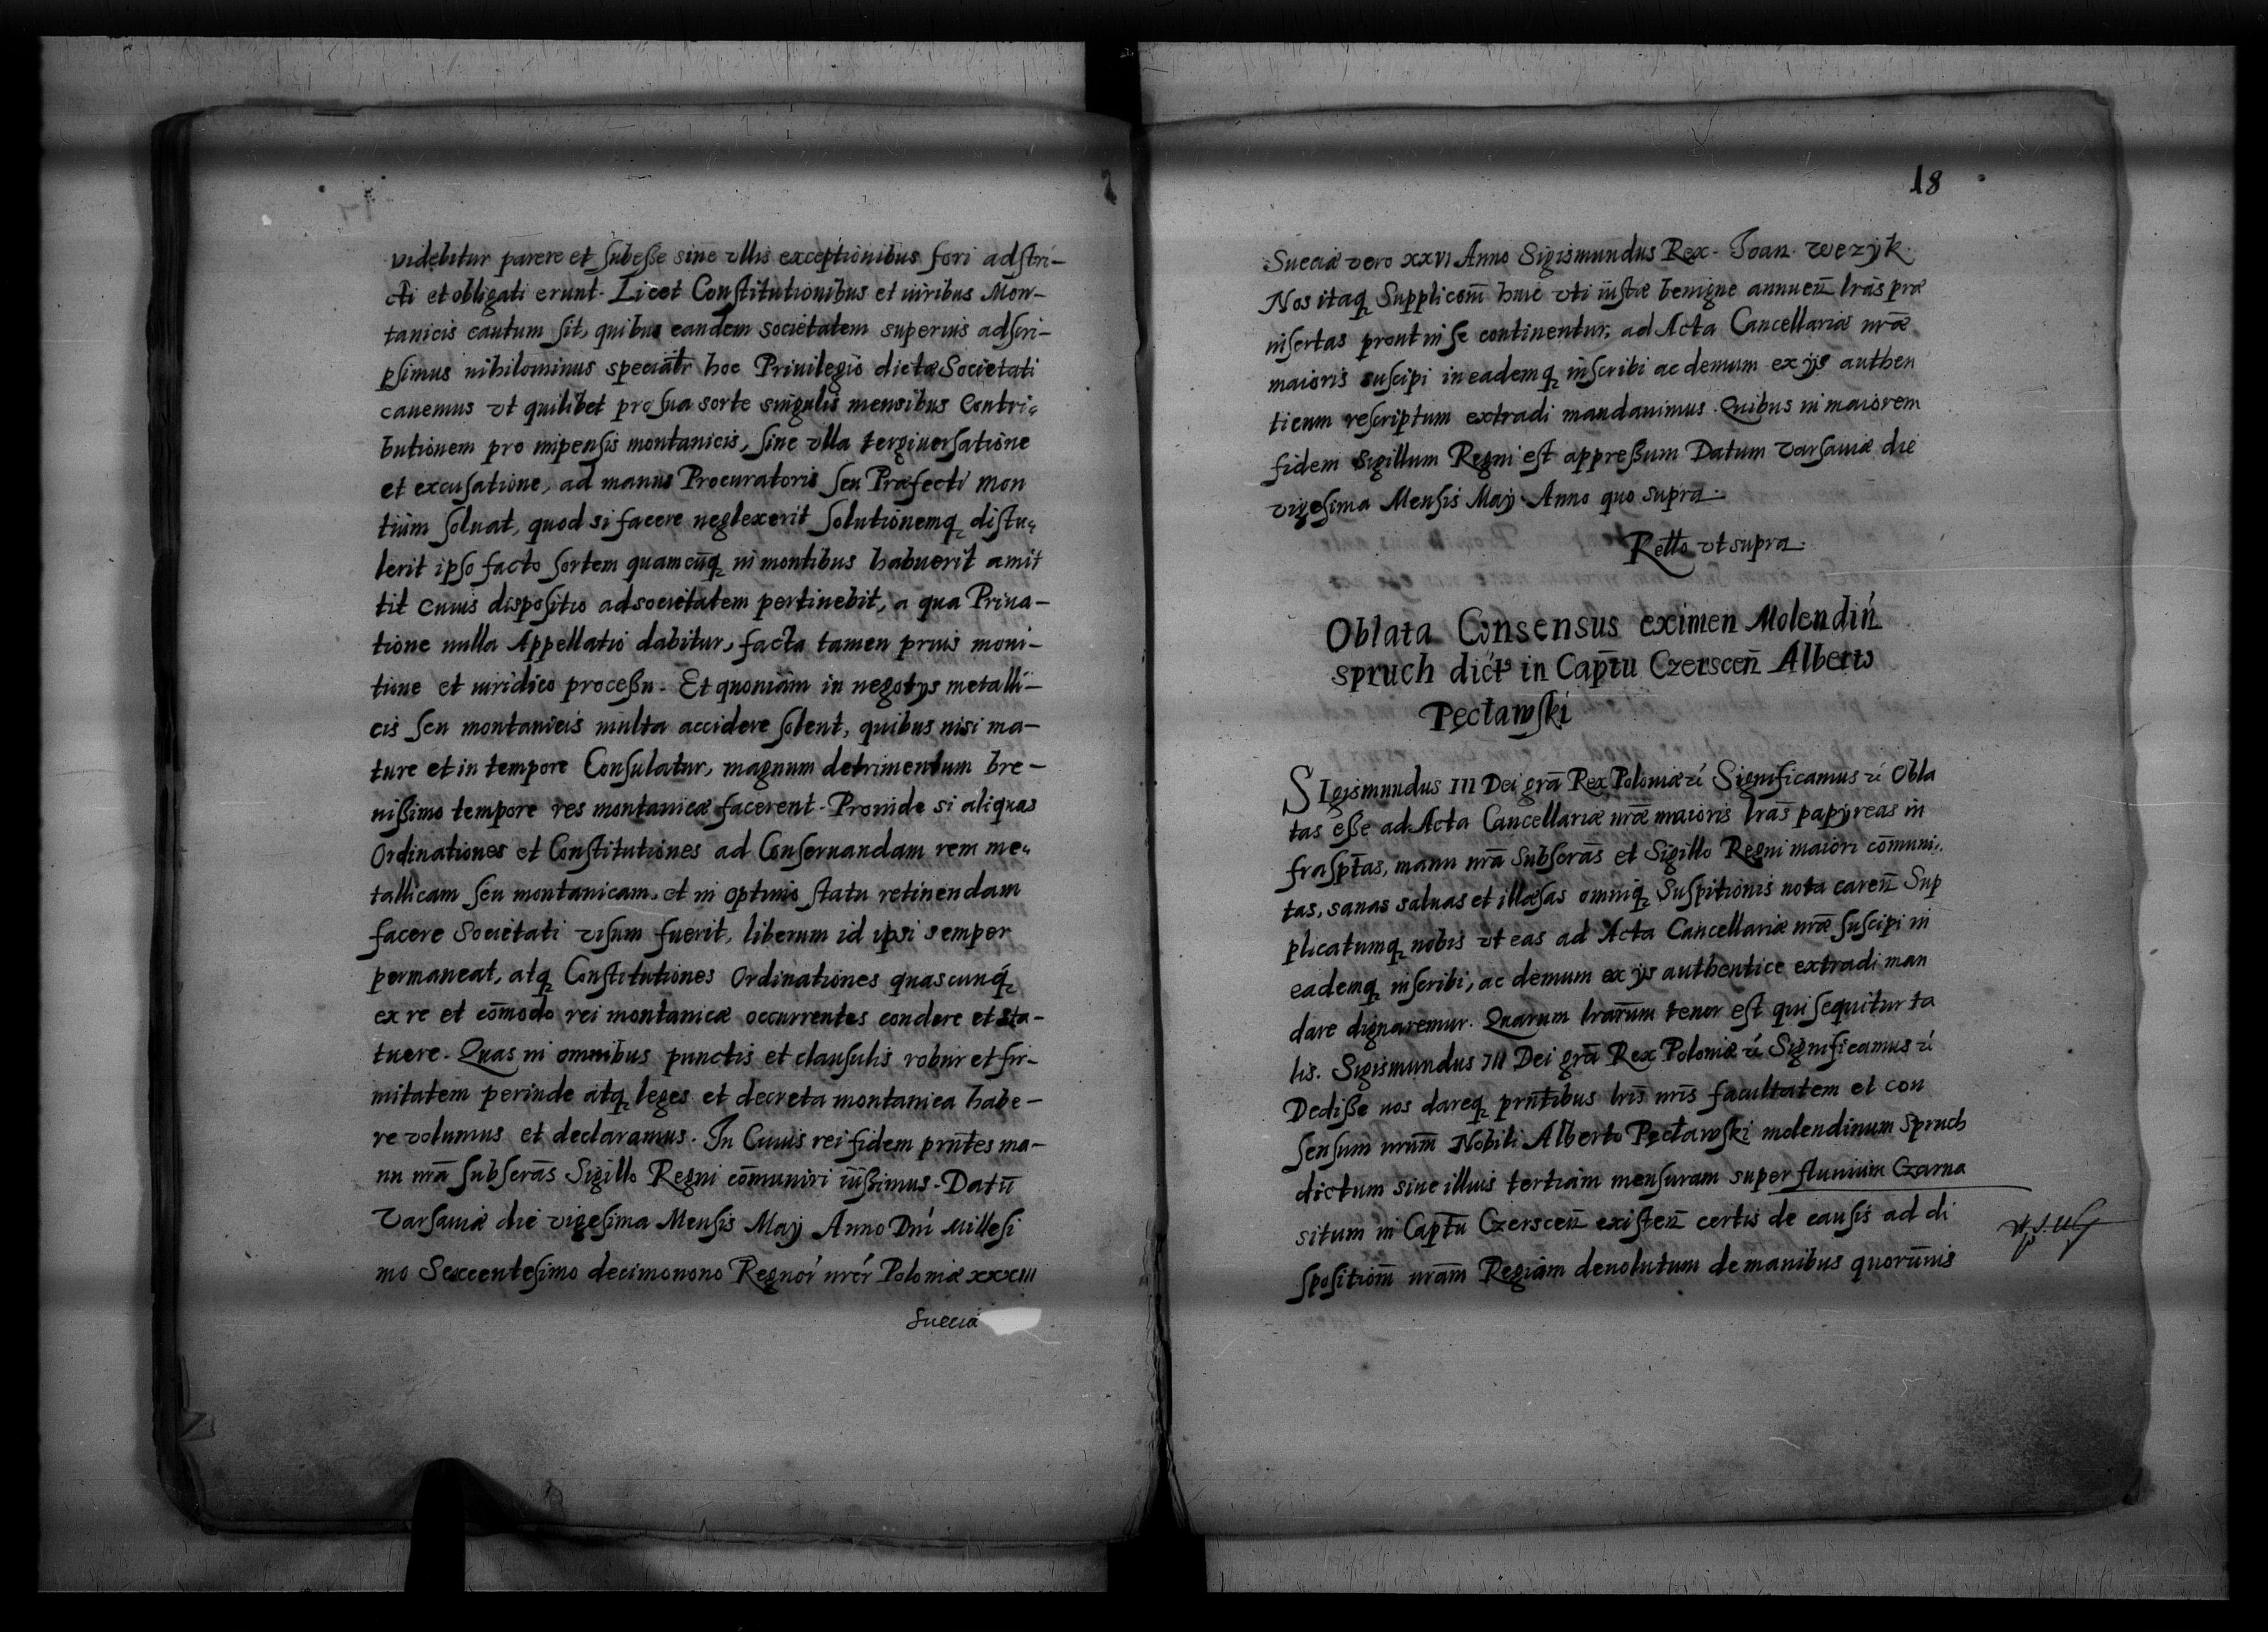 videbitur parere et subesse sine vllis exceptionibus fori adstri-
cti et obligati erunt. Licet Constitutionibus et iuribus Mon-
tanicis cautum sit, quibus eandem societatem superius adscri-
psimus nihilominus specialr hoc Priuilegio dictæ Societati
cauemus vt quilibet pro sua sorte singulis mensibus Contri-
butionem pro impensis montanicis, sine vlla tergiuersatione
et excusatione, ad manus Procuratoris seu Præfecti mon
tium soluat, quod si facere neglexerit solutionemq distu-
lerit ipso facto sortem quamcūq in montibus habuerit amit
tit cuius dispositio ad societatem pertinebit, a qua Priua-
tione nulla Appellatio dabitur, facta tamen prius moni-
tione et iuridico processu. Et quoniam in negotys metalli-
cis seu montanicis multa accidere solent, quibus nisi ma-
ture et in tempore Consulatur, magnum detrimentum bre-
uissimo tempore res montanicæ facerent. Prouide si aliquas
Ordinationes et Constitutiones ad Conseruandam rem me-
tallicam seu montanicam, et in optimo statu retinendam
facere Societati visum fuerit, liberum id ipsi semper
permaneat, atq Constitutiones Ordinationes quascunq
ex re et cōmodo rei montanicæ occurrentes condere et sta-
tuere. Quas in omnibus punctis et clausulis robur et fir-
mitatem perinde atq leges et decreta montanica habe-
re volumus et declaramus. In Cuius rei fidem prntes ma-
nu nrā subscrās Sigillo Regni cōmuniri iussimus. Datū
Varsauiæ die vigesima Mensis May Anno Dni Millesi
mo Sexcentesimo decimonono Regnor nrōr Poloniæ xxxiii
Suecia
18
Sueciæ vero xxvi Anno Sigismundus Rex. Joan. Wezyk.
Nos itaq Supplicōni huic vti iustæ benigne annuen̄ lrās præ
insertas prout in se continentur, ad Acta Cancellariæ nræ
maioris suscipi in eademq inscribi ac demum ex ys authen
ticum rescriptum extradi mandauimus. Quibus in maiorem
fidem Sigillum Regni est appressum Datum Varsauiæ die
vigesima Mensis May Anno quo supra.
Relto vt supra.
Oblata Consensus eximen Molendin
spruch dict in Cap̄tu Czerscen̄ Alberto
Pęcławski
SIgismundus III Dei grā Rex Poloniæ ć Significamus ć Obla
tas esse ad Acta Cancellariæ nræ maioris lrās papyreas in
frasptas, manu nrā subscrās et Sigillo Regni maiori cōmuni-
tas, sanas saluas et illæsas omniq Suspitionis nota caren̄ Sup
plicatumq nobis vt eas ad Acta Cancellariæ nræ suscipi in
eademq inscribi, ac demum ex ys authentice extradi man
dare dignaremur. Quarum lrarūm tenor est qui sequitur ta
lis. Sigismundus III Dei grā Rex Poloniæ ć Significamus ć
Dedisse nos dareq prntibus lris nris facultatem et con
sensum nrum Nobili Alberto Pęcławski molendinum Spruch
dictum siue illius tertiam mensuram super fluuium Czarna
situm in Cap̄tu Czerscen̄ existen̄ certis de causis ad di
spositiōm nrām Regiam deuolutum de manibus quorūuis